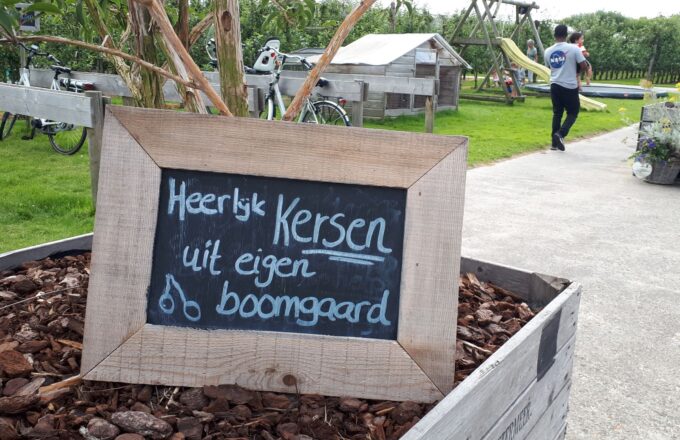 Heerlijk Kersen
uit eigen
boomgaard
NASA